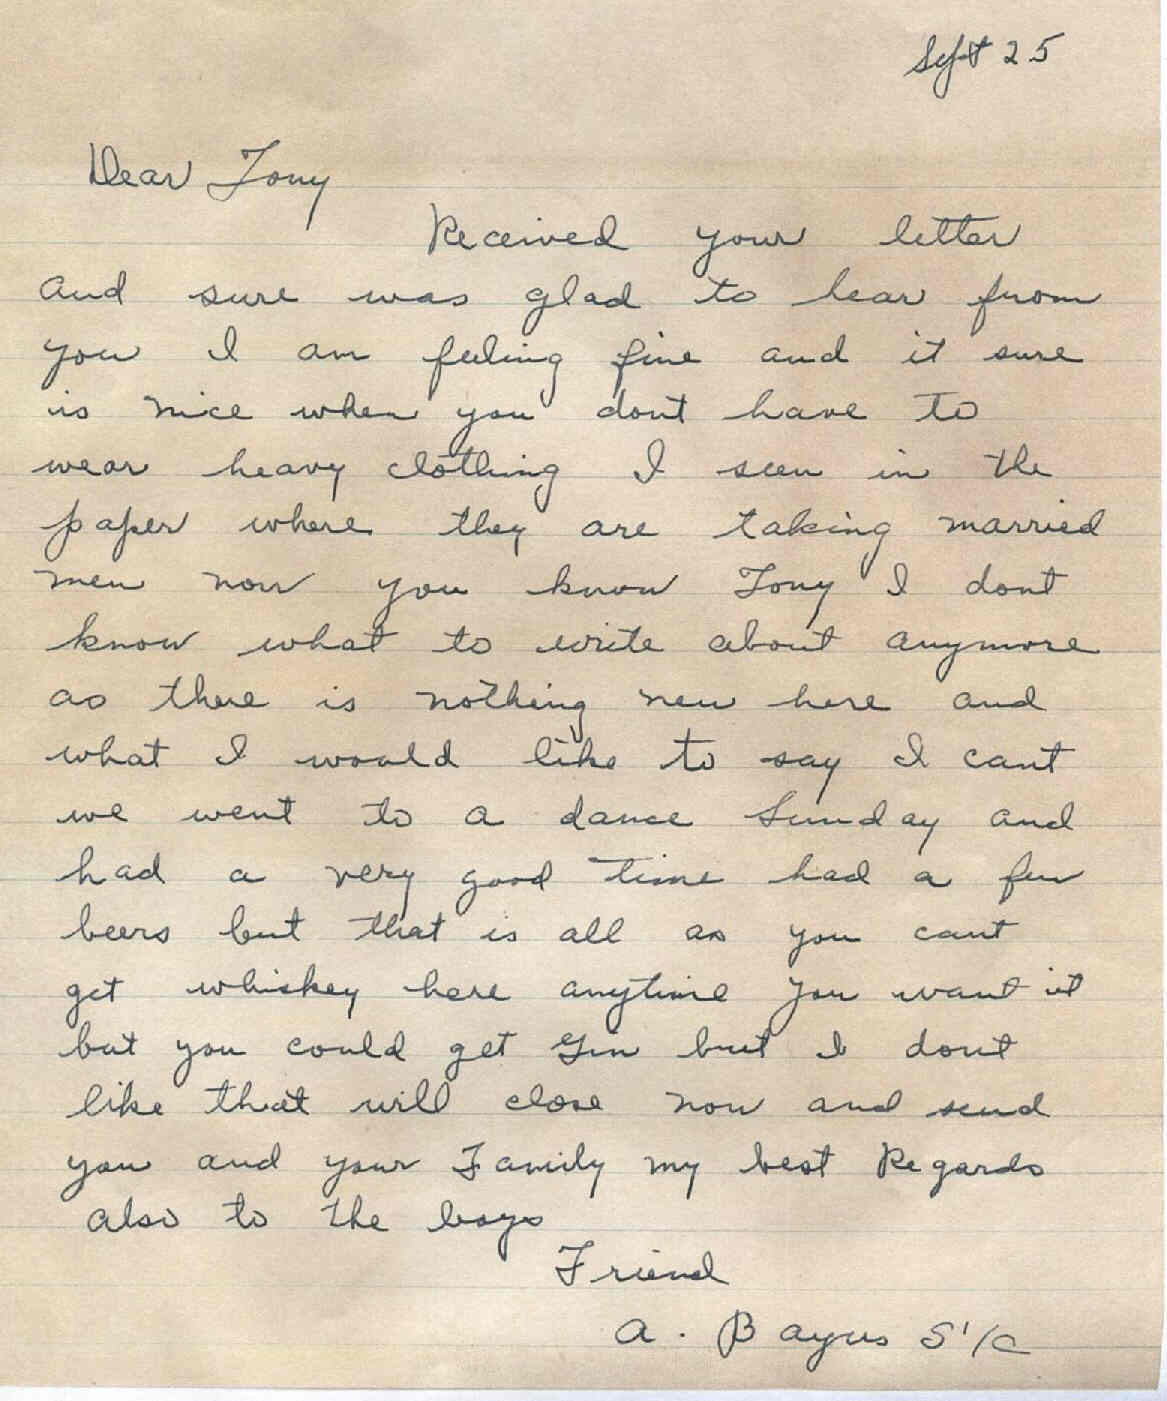 Sept 25
Dear Tony
Received your letter
and sure was glad to hear from
you I am feeling fine and it sure
is nice when you dont have to
wear heavy clothing I seen in the
paper where they are taking married
men now you know Tony I dont
know what to write about anymore
as there is nothing new here and
what I would like to say I cant
we went to a dance Sunday and
had a very good time had a few
beers but that is all as you cant
get whiskey here anytime you want it
but you could get Gin but I dont
like that will close now and send
you and your Family my best Regards
also to the boys
Friend
A. Bayus S1/C